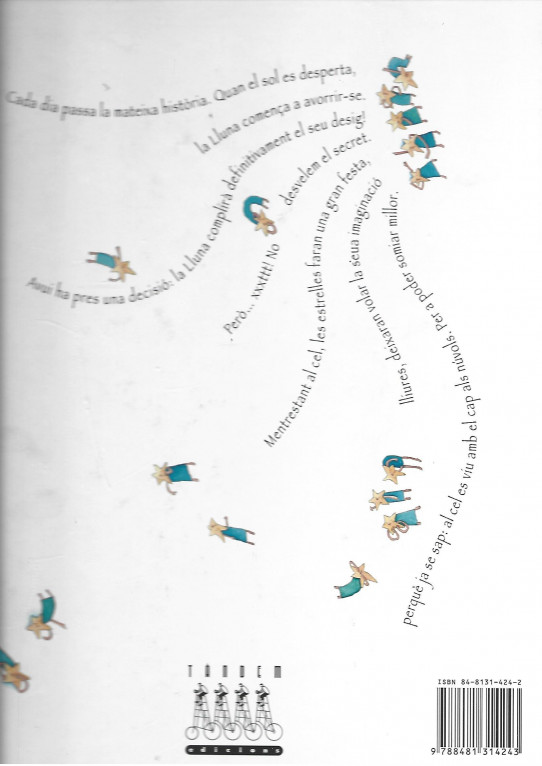 Cada dia passa la mateixa història. Quan el sol es desperta,
la Lluna comença a avorrir-se.
Avui ha pres una decisió: la Lluna complirà definitivament el seu desig!
. Però... xxxttt! No desvelem el secret.
Mentrestant al cel, les estrelles faran una gran festa,
lliures, deixaran volar la seua imaginació
perquè ja se sap: al cel es viu amb el cap als núvols. Per a poder somiar millor.
TÀNDEM
edicions
ISBN 84-8131-424-2
9 788481 314243